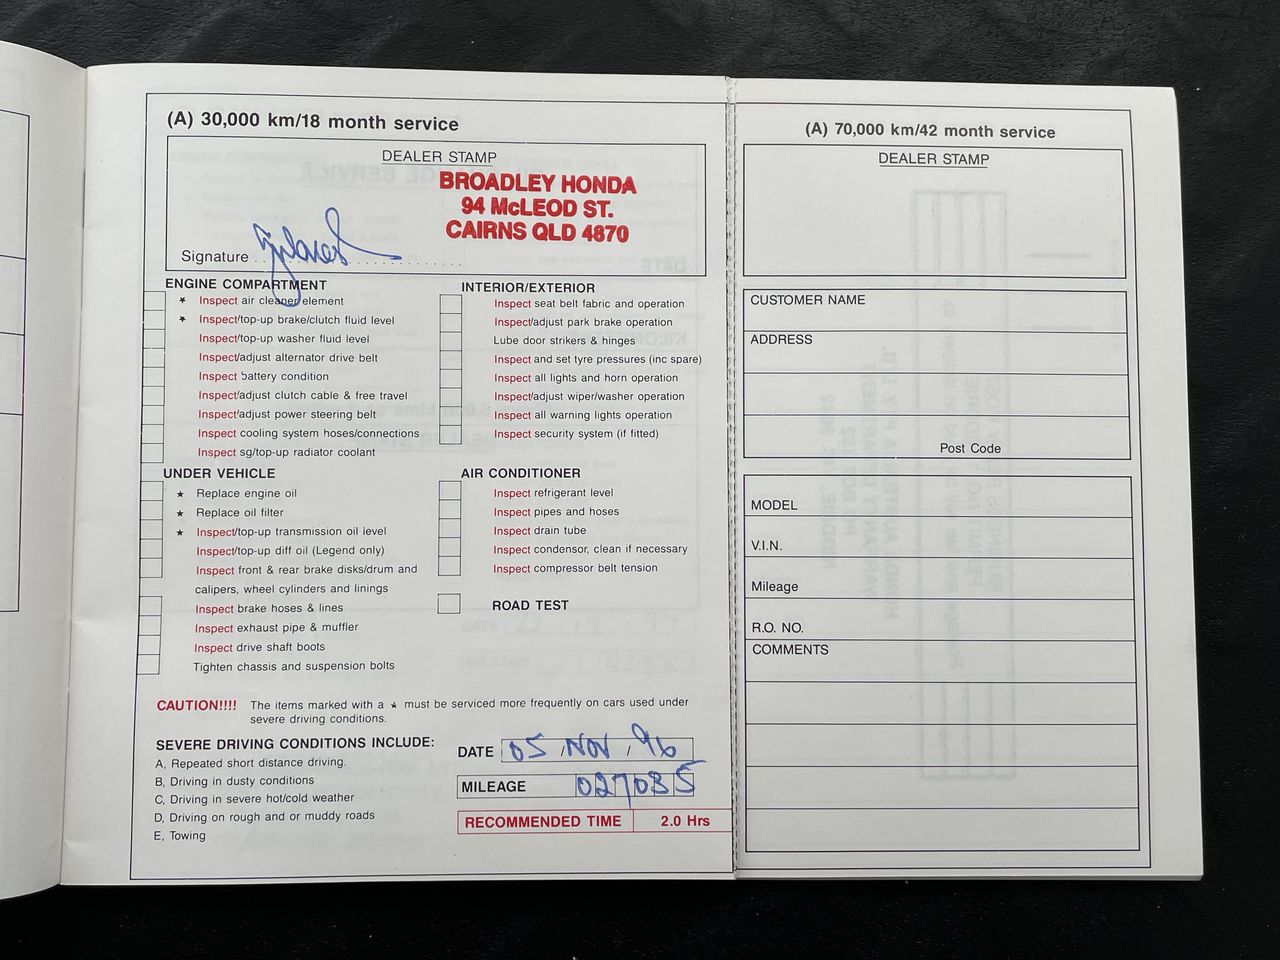 (A) 30,000 km/18 month service
DEALER STAMP
BROADLEY HONDA
94 McLEOD ST.
CAIRNS QLD 4870
Signature
ENGINE COMPARTMENT
★ Inspect air cleaner element
★ Inspect/top-up brake/clutch fluid level
Inspect/top-up washer fluid level
Inspect/adjust alternator drive belt
Inspect battery condition
Inspect/adjust clutch cable & free travel
Inspect/adjust power steering belt
Inspect cooling system hoses/connections
Inspect sg/top-up radiator coolant
UNDER VEHICLE
★ Replace engine oil
★ Replace oil filter
★ Inspect/top-up transmission oil level
Inspect/top-up diff oil (Legend only)
Inspect front & rear brake disks/drum and
calipers, wheel cylinders and linings
Inspect brake hoses & lines
Inspect exhaust pipe & muffler
Inspect drive shaft boots
Tighten chassis and suspension bolts
INTERIOR/EXTERIOR
Inspect seat belt fabric and operation
Inspect/adjust park brake operation
Lube door strikers & hinges
Inspect and set tyre pressures (inc spare)
Inspect all lights and horn operation
Inspect/adjust wiper/washer operation
Inspect all warning lights operation
Inspect security system (if fitted)
AIR CONDITIONER
Inspect refrigerant level
Inspect pipes and hoses
Inspect drain tube
Inspect condensor, clean if necessary
Inspect compressor belt tension
ROAD TEST
CAUTION!!!! The items marked with a ★ must be serviced more frequently on cars used under
severe driving conditions.
SEVERE DRIVING CONDITIONS INCLUDE:
A, Repeated short distance driving.
B, Driving in dusty conditions
C, Driving in severe hot/cold weather
D, Driving on rough and or muddy roads
E, Towing
DATE 05 / NOV / 96
MILEAGE 027035
RECOMMENDED TIME 2.0 Hrs
(A) 70,000 km/42 month service
DEALER STAMP
CUSTOMER NAME
ADDRESS
Post Code
MODEL
V.I.N.
Mileage
R.O. NO.
COMMENTS